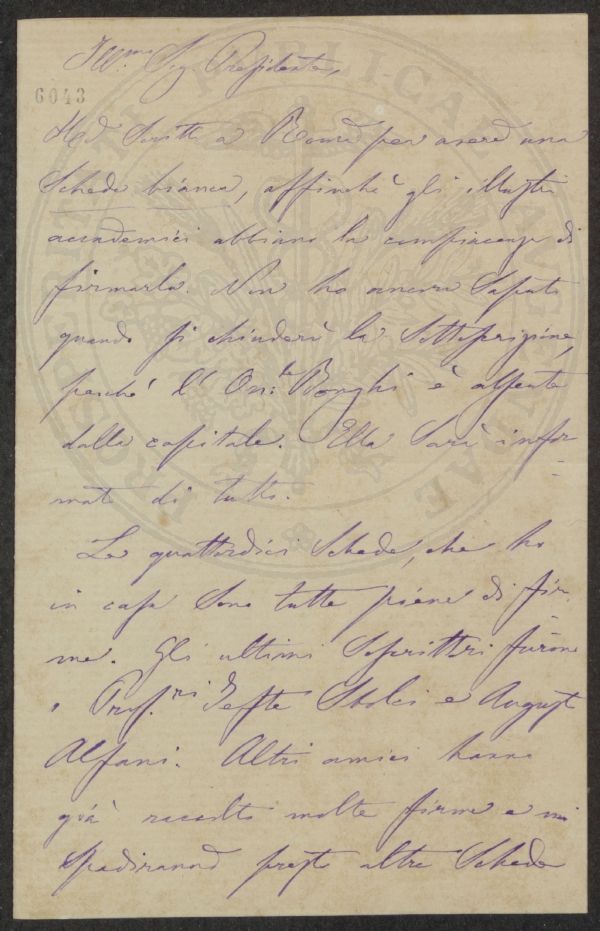 Ill.mo Sig Presidente,
6043
Ho Scritto a Roma per avere una
Scheda bianca, affinchè gli illustri
accademici abbiano la compiacenza di
firmarla. Non ho ancora Saputo
quando si chiuderà la Sottoscrizione,
perchè l'On:le Bonghi è assente
dalla capitale. Ella Sarà infor-
mato di tutto.
Le quattordici Schede, che ho
in casa Sono tutte piene di fir-
me. Gli ultimi Soscrittori furono
i Prof.ri e August
Alfani. Altri amici hanno
già raccolto molte firme e mi
Spediranno presto altre Schede
PROSPERITATI PUBLICAE AUGENDAE